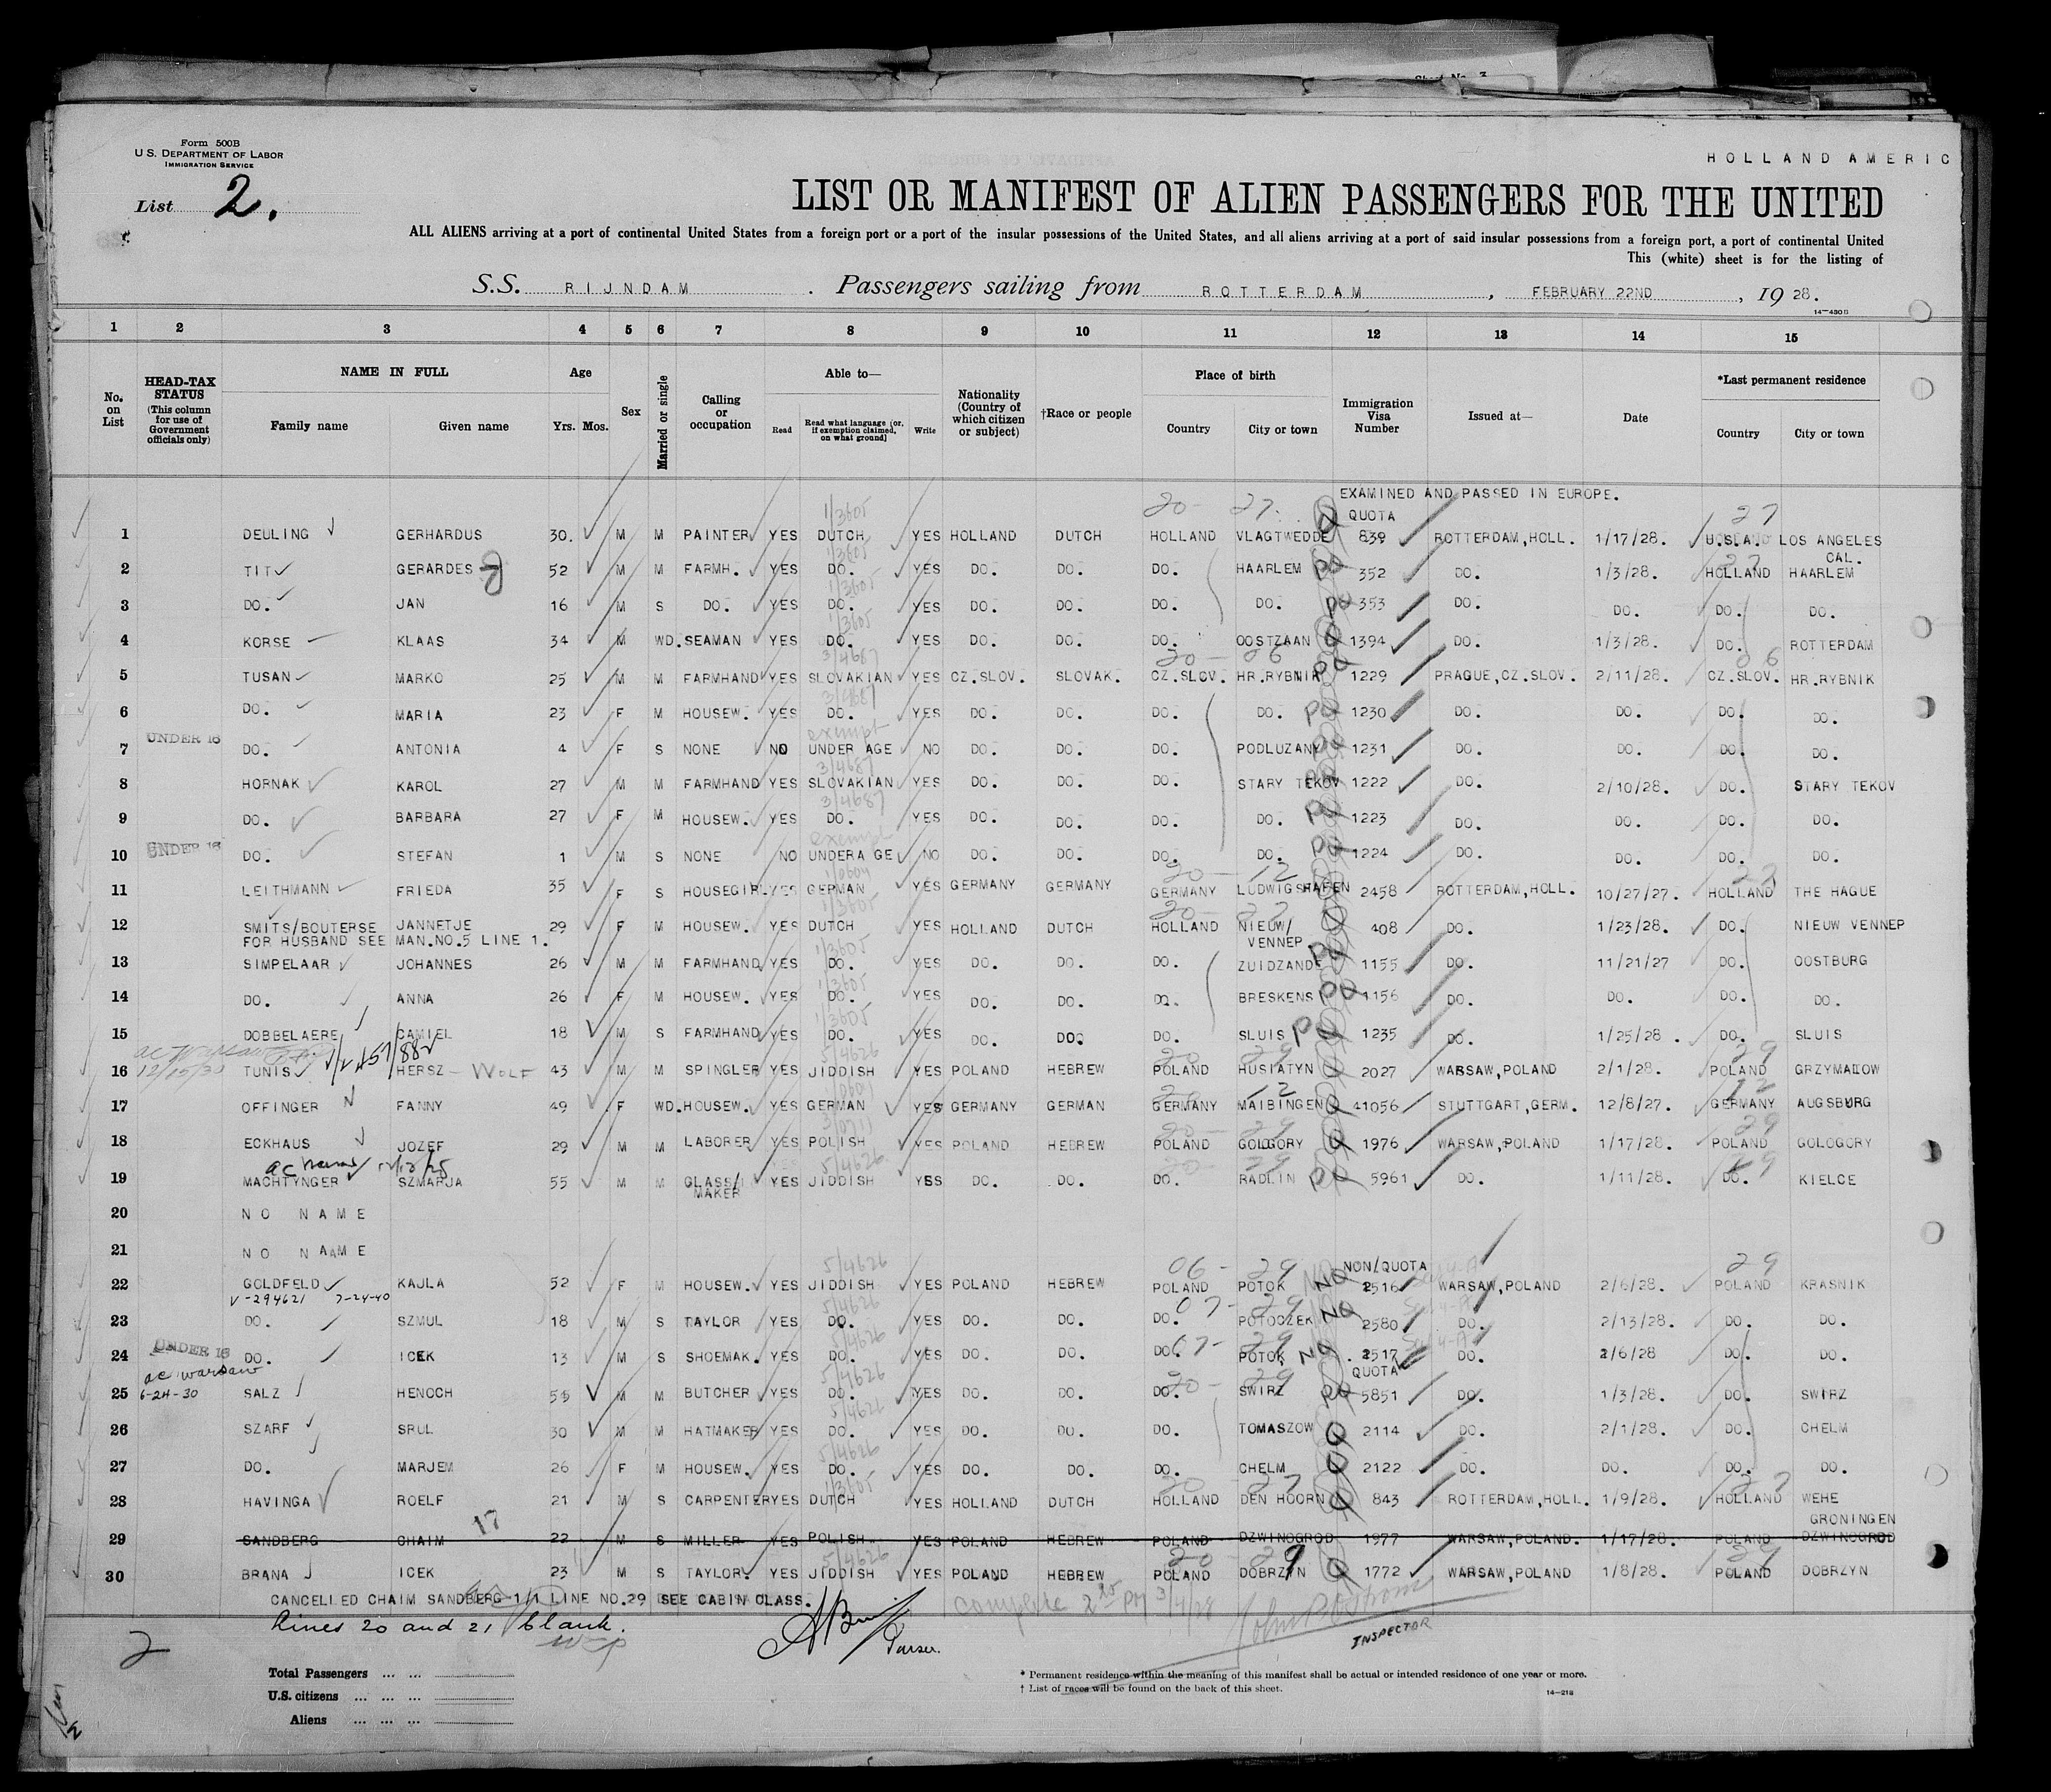 Form 500B
U.S. DEPARTMENT OF LABOR
IMMIGRATION SERVICE
HOLLAND AMERIC
List 2.
LIST OR MANIFEST OF ALIEN PASSENGERS FOR THE UNITED
ALL ALIENS arriving at a port of continental United States from a foreign port or a port of the insular possessions of the United States, and all aliens arriving at a port of said insular possessions from a foreign port, a port of continental United
This (white) sheet is for the listing of
S.S. RIJNDAM. Passengers sailing from ROTTERDAM, FEBRUARY 22ND, 1928.
14-430 B
1 2 3 4 5 6 7 8 9 10 11 12 13 14 15
No. on List
HEAD-TAX STATUS (This column for use of Government officials only)
NAME IN FULL Family name Given name
Age Yrs. Mos.
Sex
Married or single
Calling or occupation
Able to— Read Read what language (or, if exemption claimed, on what ground) Write
Nationality (Country of which citizen or subject)
†Race or people
Place of birth Country City or town
Immigration Visa Number
Issued at—
Date
*Last permanent residence Country City or town
EXAMINED AND PASSED IN EUROPE.
QUOTA
1 DEULING GERHARDUS 30. M M PAINTER YES DUTCH YES HOLLAND DUTCH HOLLAND VLAGTWEDDE 839 ROTTERDAM,HOLL. 1/17/28. U.S.A. LOS ANGELES CAL.
2 TIT GERARDES 52 M M FARMH. YES DO. YES DO. DO. DO. HAARLEM 352 DO. 1/3/28. HOLLAND HAARLEM
3 DO. JAN 16 M S DO. YES DO. YES DO. DO. DO. DO. 353 DO. DO. DO. DO.
4 KORSE KLAAS 34 M WD. SEAMAN YES DO. YES DO. DO. DO. OOSTZAAN 1394 DO. 1/3/28. DO. ROTTERDAM
5 TUSAN MARKO 25 M M FARMHAND YES SLOVAKIAN YES CZ.SLOV. SLOVAK. CZ.SLOV. HR.RYBNIK 1229 PRAGUE,CZ.SLOV. 2/11/28. CZ.SLOV. HR.RYBNIK
6 DO. MARIA 23 F M HOUSEW. YES DO. YES DO. DO. DO. DO. 1230 DO. DO. DO. DO.
7 UNDER 16 DO. ANTONIA 4 F S NONE NO UNDER AGE NO DO. DO. DO. PODLUZANY 1231 DO. DO. DO. DO.
8 HORNAK KAROL 27 M M FARMHAND YES SLOVAKIAN YES DO. DO. DO. STARY TEKOV 1222 DO. 2/10/28. DO. STARY TEKOV
9 DO. BARBARA 27 F M HOUSEW. YES DO. YES DO. DO. DO. DO. 1223 DO. DO. DO. DO.
10 UNDER 16 DO. STEFAN 1 M S NONE NO UNDERAGE NO DO. DO. DO. DO. 1224 DO. DO. DO. DO.
11 LEITHMANN FRIEDA 35 F S HOUSEGIRL YES GERMAN YES GERMANY GERMANY GERMANY LUDWIGSHAFEN 2458 ROTTERDAM,HOLL. 10/27/27. HOLLAND THE HAGUE
12 SMITS/BOUTERSE JANNETJE 29 F M HOUSEW. YES DUTCH YES HOLLAND DUTCH HOLLAND NIEUW/VENNEP 408 DO. 1/23/28. DO. NIEUW VENNEP
FOR HUSBAND SEE MAN.NO.5 LINE 1.
13 SIMPELAAR JOHANNES 26 M M FARMHAND YES DO. YES DO. DO. DO. ZUIDZANDE 1155 DO. 11/21/27 DO. OOSTBURG
14 DO. ANNA 26 F M HOUSEW. YES DO. YES DO. DO. DO. BRESKENS 1156 DO. DO. DO. DO.
15 DOBBELAERE CAMIEL 18 M S FARMHAND YES DO. YES DO. DO. DO. SLUIS 1235 DO. 1/25/28. DO. SLUIS
ac Warsaw 12/15/30
16 TUNIS HERSZ - WOLF 43 M M SPINGLER YES JIDDISH YES POLAND HEBREW POLAND HUSIATYN 2027 WARSAW,POLAND 2/1/28. POLAND GRZYMALOW
17 OFFINGER FANNY 49 F WD. HOUSEW. YES GERMAN YES GERMANY GERMAN GERMANY MAIBINGEN 41056 STUTTGART,GERM. 12/8/27. GERMANY AUGSBURG
18 ECKHAUS JOZEF 29 M M LABORER YES POLISH YES POLAND HEBREW POLAND GOLOGORY 1976 WARSAW,POLAND 1/17/28. POLAND GOLOGORY
19 MACHTYNGER SZMARJA 55 M M GLASS/MAKER YES JIDDISH YES DO. DO. DO. RADLIN 5961 DO. 1/11/28. DO. KIELCE
20 NO NAME
21 NO NAME
NON/QUOTA
22 GOLDFELD KAJLA 52 F M HOUSEW. YES JIDDISH YES POLAND HEBREW POLAND POTOK 2516 WARSAW,POLAND 2/6/28. POLAND KRASNIK
V-294621 7-24-40
23 DO. SZMUL 18 M S TAYLOR YES DO. YES DO. DO. DO. POTOCZEK 2580 DO. 2/13/28. DO. DO.
24 UNDER 16 DO. ICEK 13 M S SHOEMAK. YES DO. YES DO. DO. DO. POTOK 2517 DO. 2/6/28 DO. DO.
QUOTA
ac warsaw 6-24-30
25 SALZ HENOCH 55 M M BUTCHER YES DO. YES DO. DO. DO. SWIRZ 5851 DO. 1/3/28. DO. SWIRZ
26 SZARF SRUL 30 M M HATMAKER YES DO. YES DO. DO. DO. TOMASZOW 2114 DO. 2/1/28. DO. CHELM
27 DO. MARJEM 26 F M HOUSEW. YES DO. YES DO. DO. DO. CHELM 2122 DO. DO. DO. DO.
28 HAVINGA ROELF 21 M S CARPENTER YES DUTCH YES HOLLAND DUTCH HOLLAND DEN HOORN 843 ROTTERDAM,HOLL. 1/9/28. HOLLAND WEHE GRONINGEN
29 SANDBERG CHAIM 22 M S MILLER YES POLISH YES POLAND HEBREW POLAND DZWINOGROD 1977 WARSAW,POLAND. 1/17/28. POLAND DZWINOGROD
30 BRANA ICEK 23 M S TAYLOR. YES JIDDISH YES POLAND HEBREW POLAND DOBRZYN 1772 WARSAW,POLAND 1/8/28. POLAND DOBRZYN
CANCELLED CHAIM SANDBERG 1/1 LINE NO.29 SEE CABIN CLASS.
Lines 20 and 21 blank.
Purser.
complete
INSPECTOR
2
Total Passengers ... ...
U.S. citizens ... ... ...
Aliens ... ... ...
* Permanent residence within the meaning of this manifest shall be actual or intended residence of one year or more.
† List of races will be found on the back of this sheet.
14-218